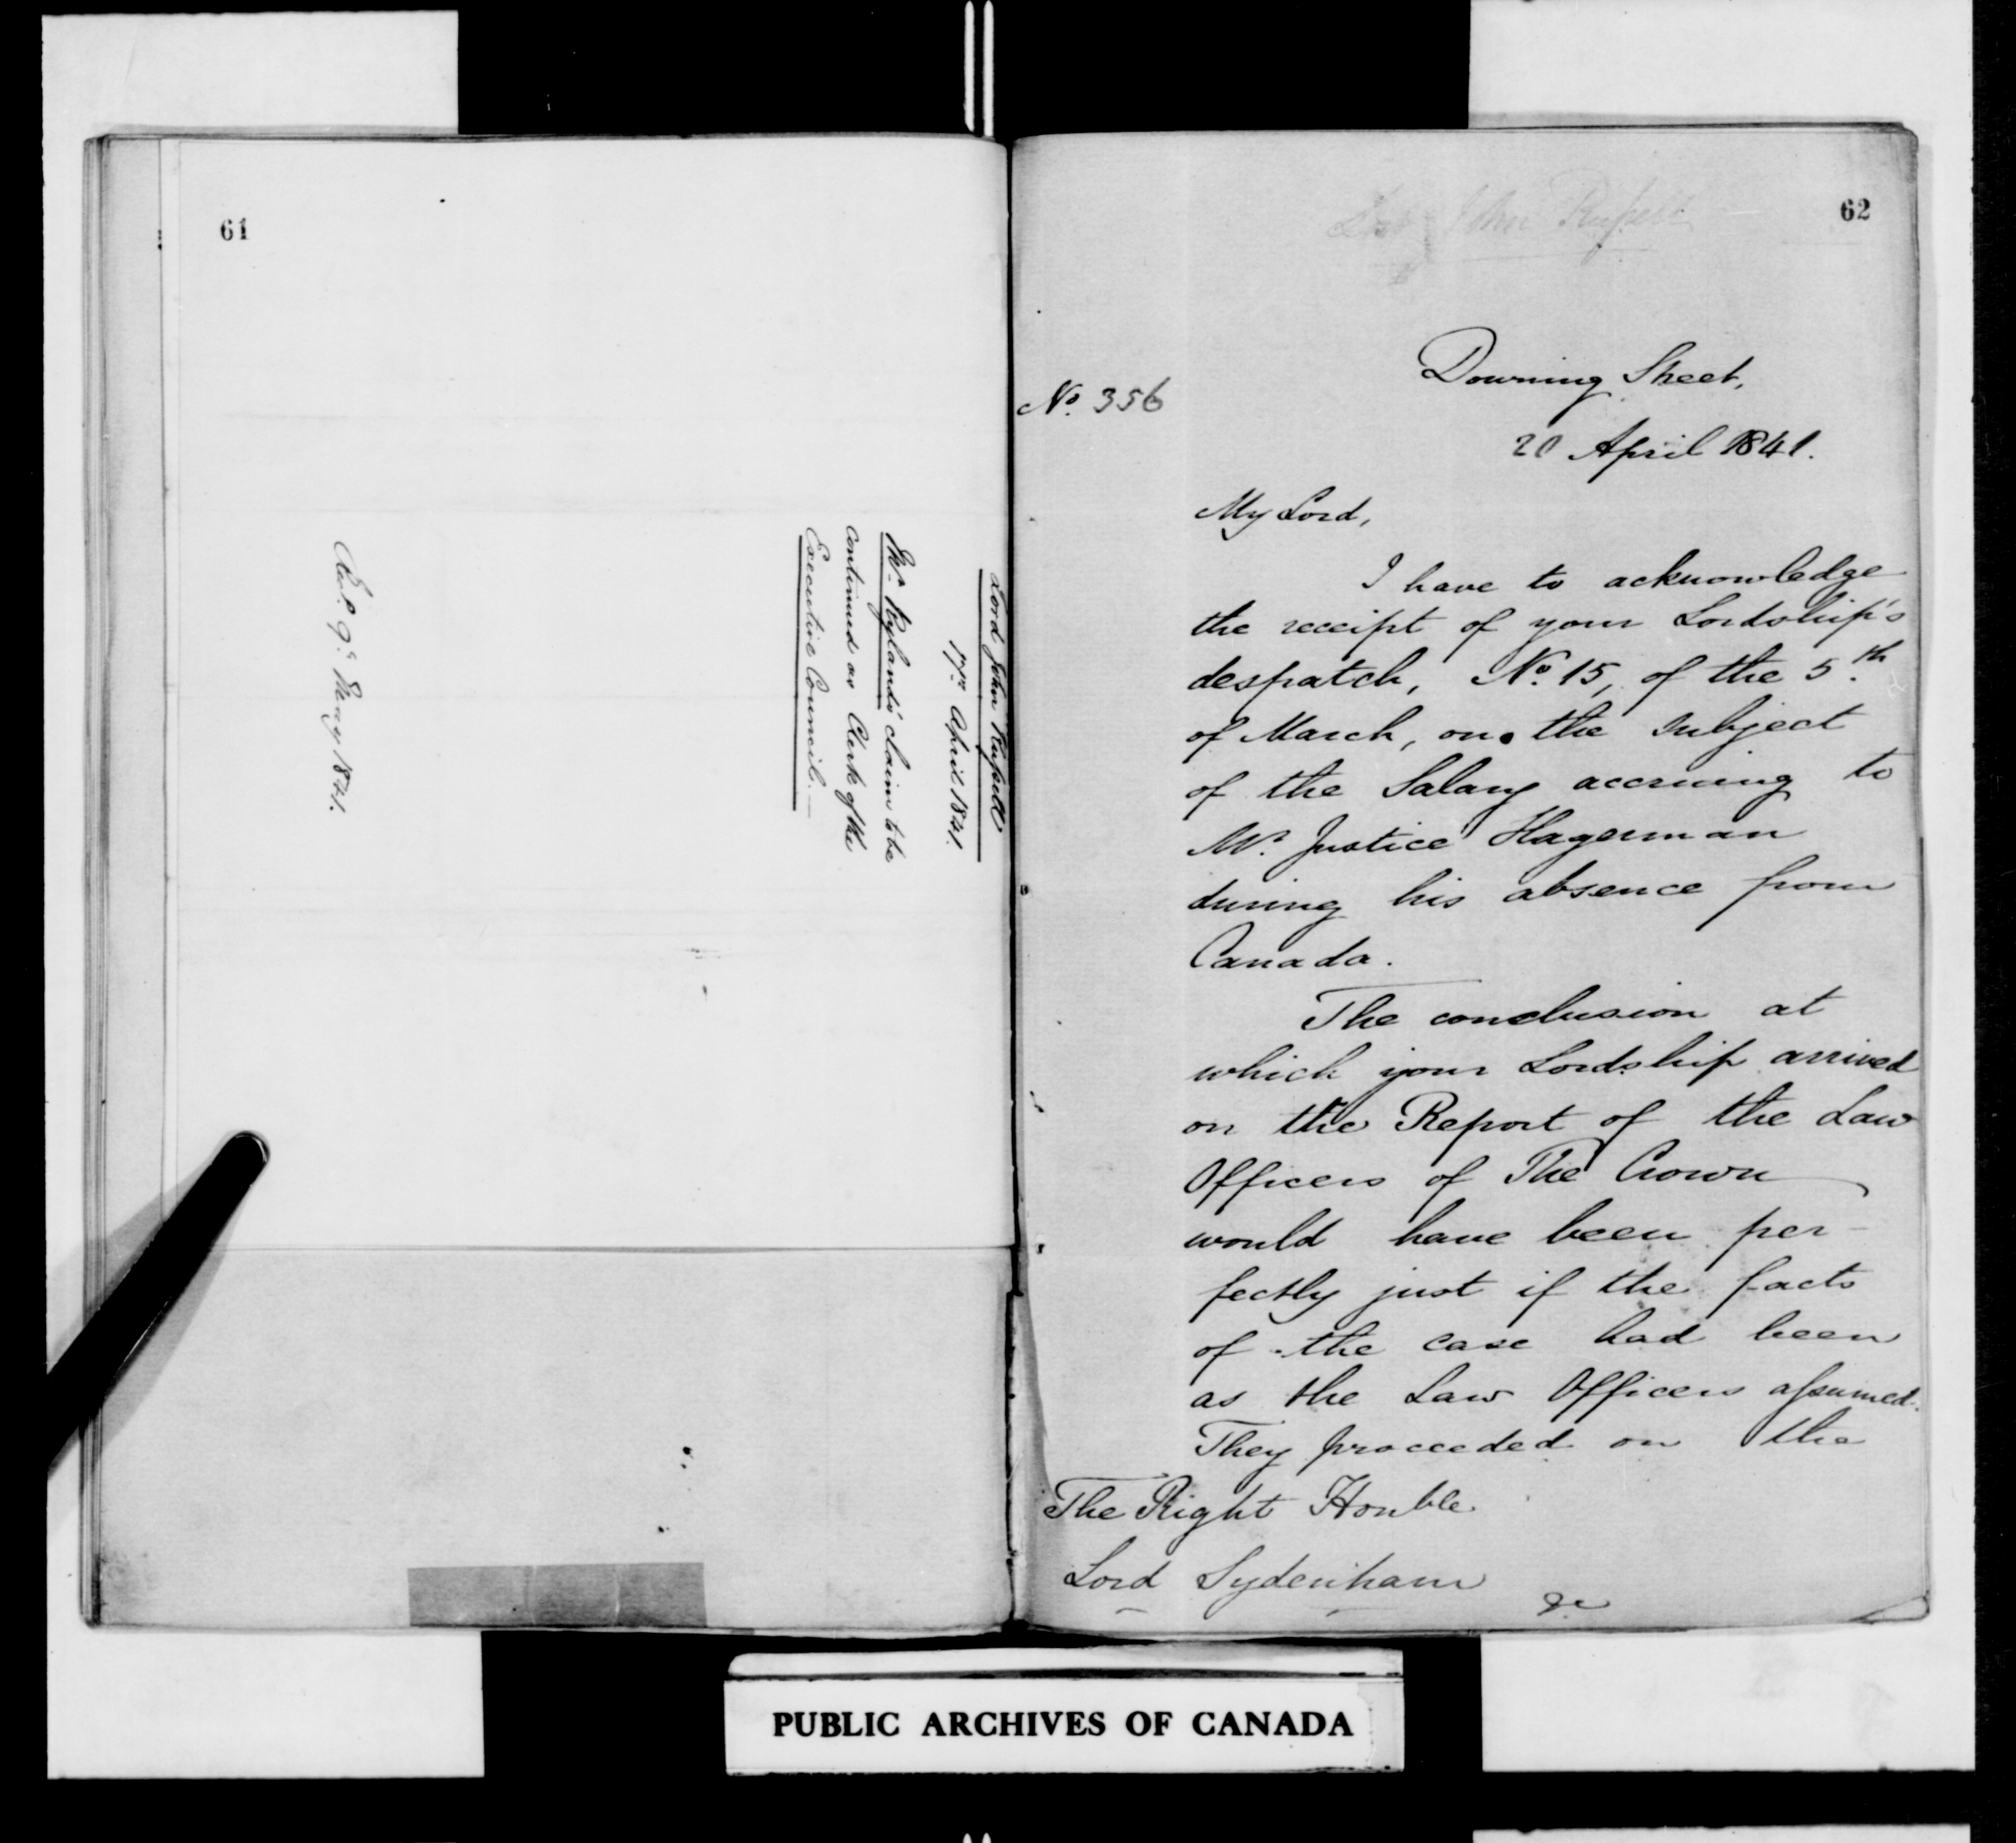 61
Lord John Russell
17th April 1841.
Mr. Ryland's claim to be
continued as Clerk of the
Executive Council.—
May 1841.
62
Lord John Russell
No. 356
Downing Street,
20 April 1841.
My Lord,
I have to acknowledge
the receipt of your Lordship's
despatch, No. 15, of the 5th
of March, on the subject
of the Salary accruing to
Mr. Justice Hagerman
during his absence from
Canada.
The conclusion at
which your Lordship arrived
on the Report of the Law
Officers of The Crown
would have been per-
fectly just if the facts
of the case had been
as the Law Officers assumed.
They proceeded on the
The Right Honble
Lord Sydenham
&c
PUBLIC ARCHIVES OF CANADA